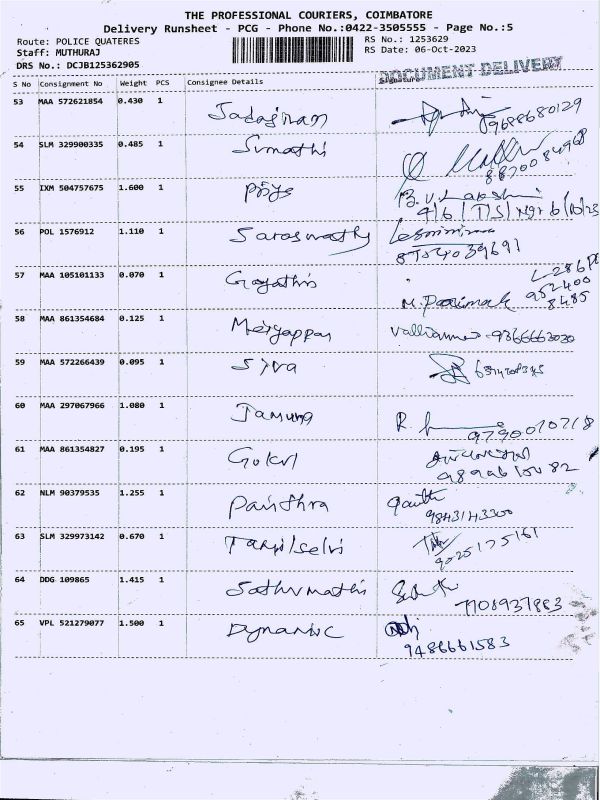 THE PROFESSIONAL COURIERS, COIMBATORE
Delivery Runsheet - PCG - Phone No.:0422-3505555 - Page No.:5
Route: POLICE QUATERES RS No.: 1253629
Staff: MUTHURAJ RS Date: 06-Oct-2023
DRS No.: DCJB125362905
DOCUMENT DELIVERY
S No Consignment No Weight PCS Consignee Details Signature
53 MAA 572621854 0.430 1
9688680129
54 SLM 329900335 0.485 1 Sumathi
55 IXM 504757675 1.600 1 Priya
B.V. Lakshmi
56 POL 1576912 1.110 1 Saraswathy
57 MAA 105101133 0.070 1 Gayathis
952400
8485
58 MAA 861354684 0.125 1 Meiyappan
9366663030
59 MAA 572266439 0.095 1 Siva
60 MAA 297067966 1.080 1 Jamuna
R.
9790010718
61 MAA 861354827 0.195 1 Gokul
62 NLM 90379535 1.255 1 Pavithra
9843143300
63 SLM 329973142 0.670 1 Tamilselvi
9025175161
64 DDG 109865 1.415 1 Sathumathi
7708937883
65 VPL 521279077 1.500 1 Dynamic
9486661583